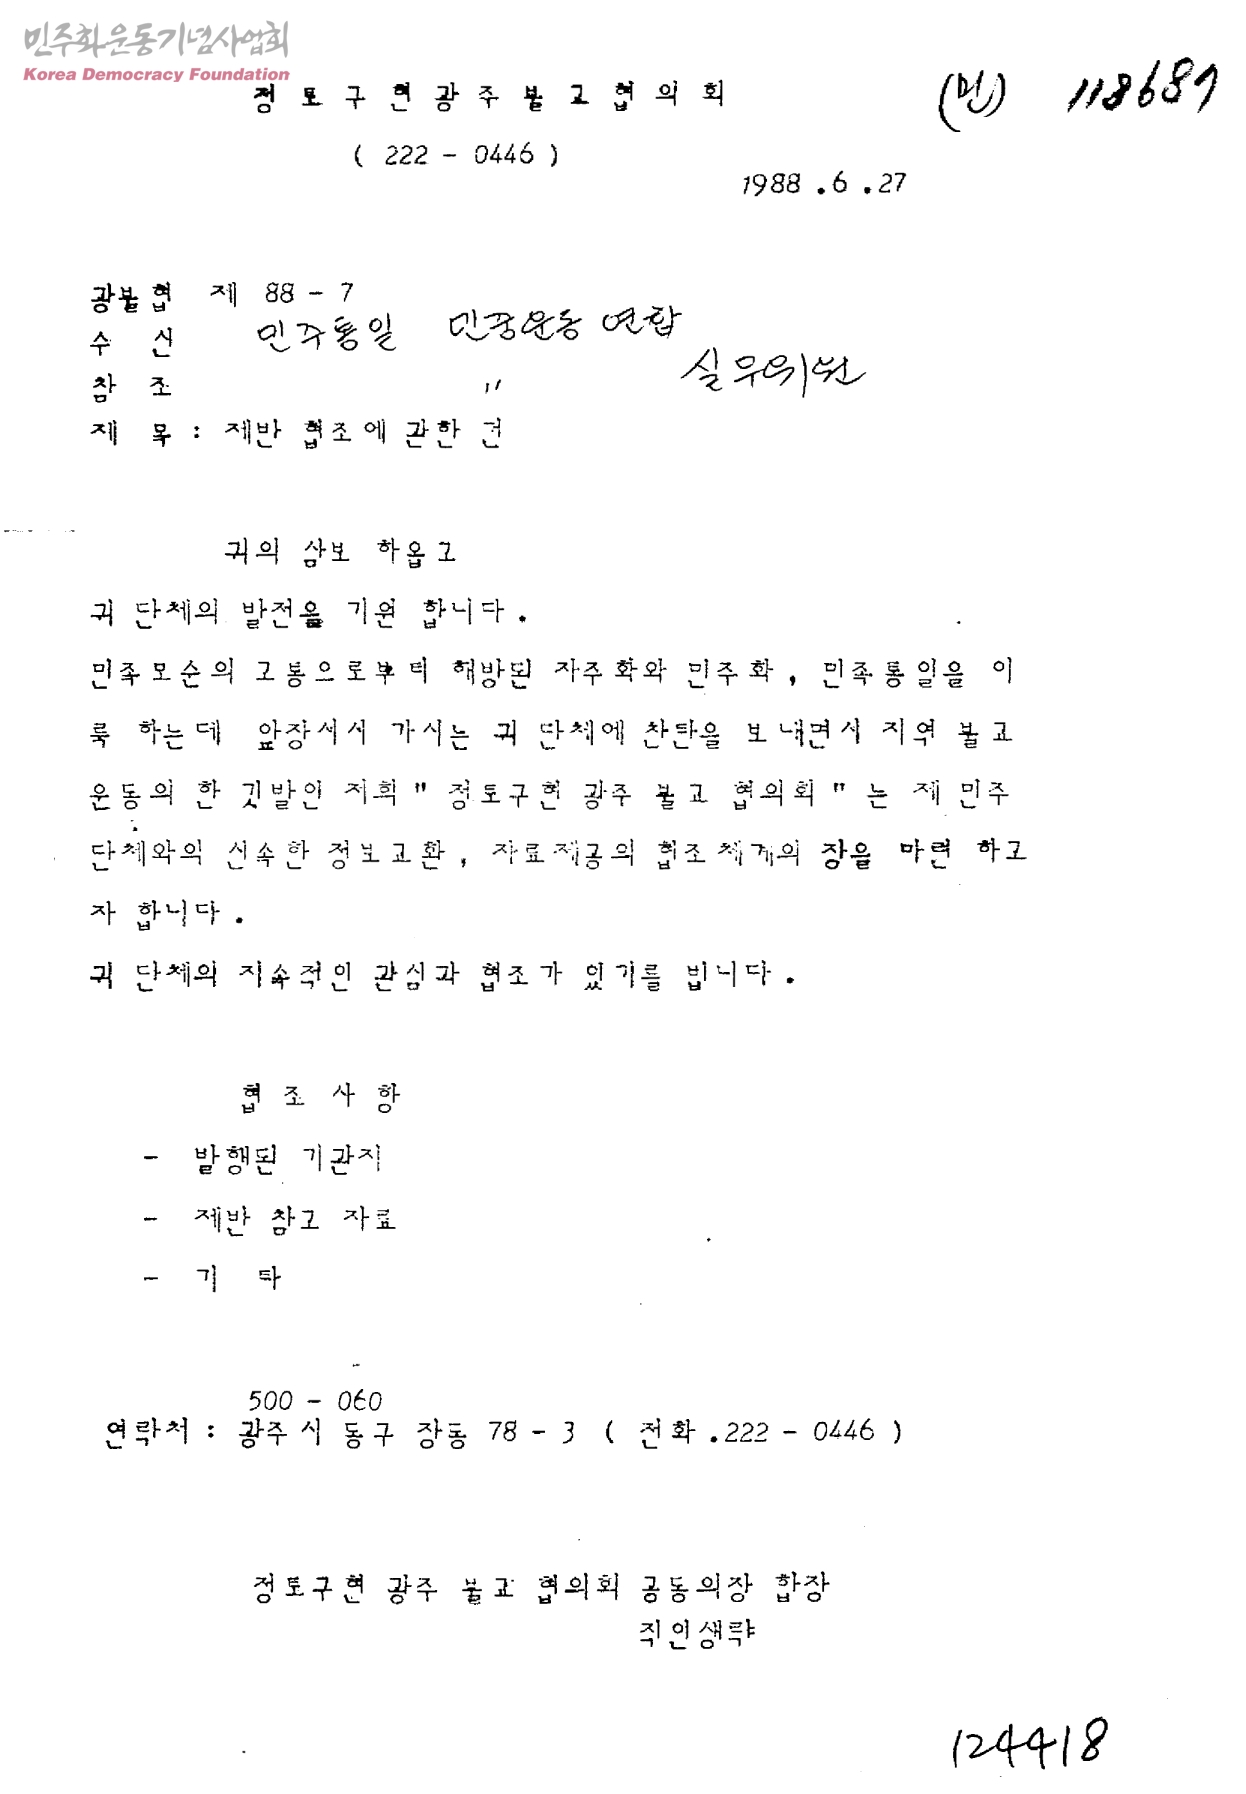 민주화운동기념사업회
Korea Democracy Foundation
정토구현광주불교협의회
(민) 118687
( 222 - 0446 )
1988 . 6 . 27
광불협 제 88 - 7
수 신 민주통일 민중운동 연합
참 조 〃 실무위원
제 목 : 제반 협조에 관한 건
귀의 삼보 하옵고
귀 단체의 발전을 기원 합니다 .
민족모순의 고통으로부터 해방된 자주화와 민주화 , 민족통일을 이
룩 하는데 앞장서서 가시는 귀 단체에 찬탄을 보내면서 지역 불교
운동의 한 깃발인 저희 " 정토구현 광주 불교 협의회 " 는 제 민주
단체와의 신속한 정보교환 , 자료제공의 협조체계의 장을 마련 하고
자 합니다 .
귀 단체의 지속적인 관심과 협조가 있기를 빕니다 .
협 조 사 항
- 발행된 기관지
- 제반 참고 자료
- 기 타
500 - 060
연락처 : 광주시 동구 장동 78 - 3 ( 전화 .222 - 0446 )
정토구현 광주 불교 협의회 공동의장 합장
직인생략
124418